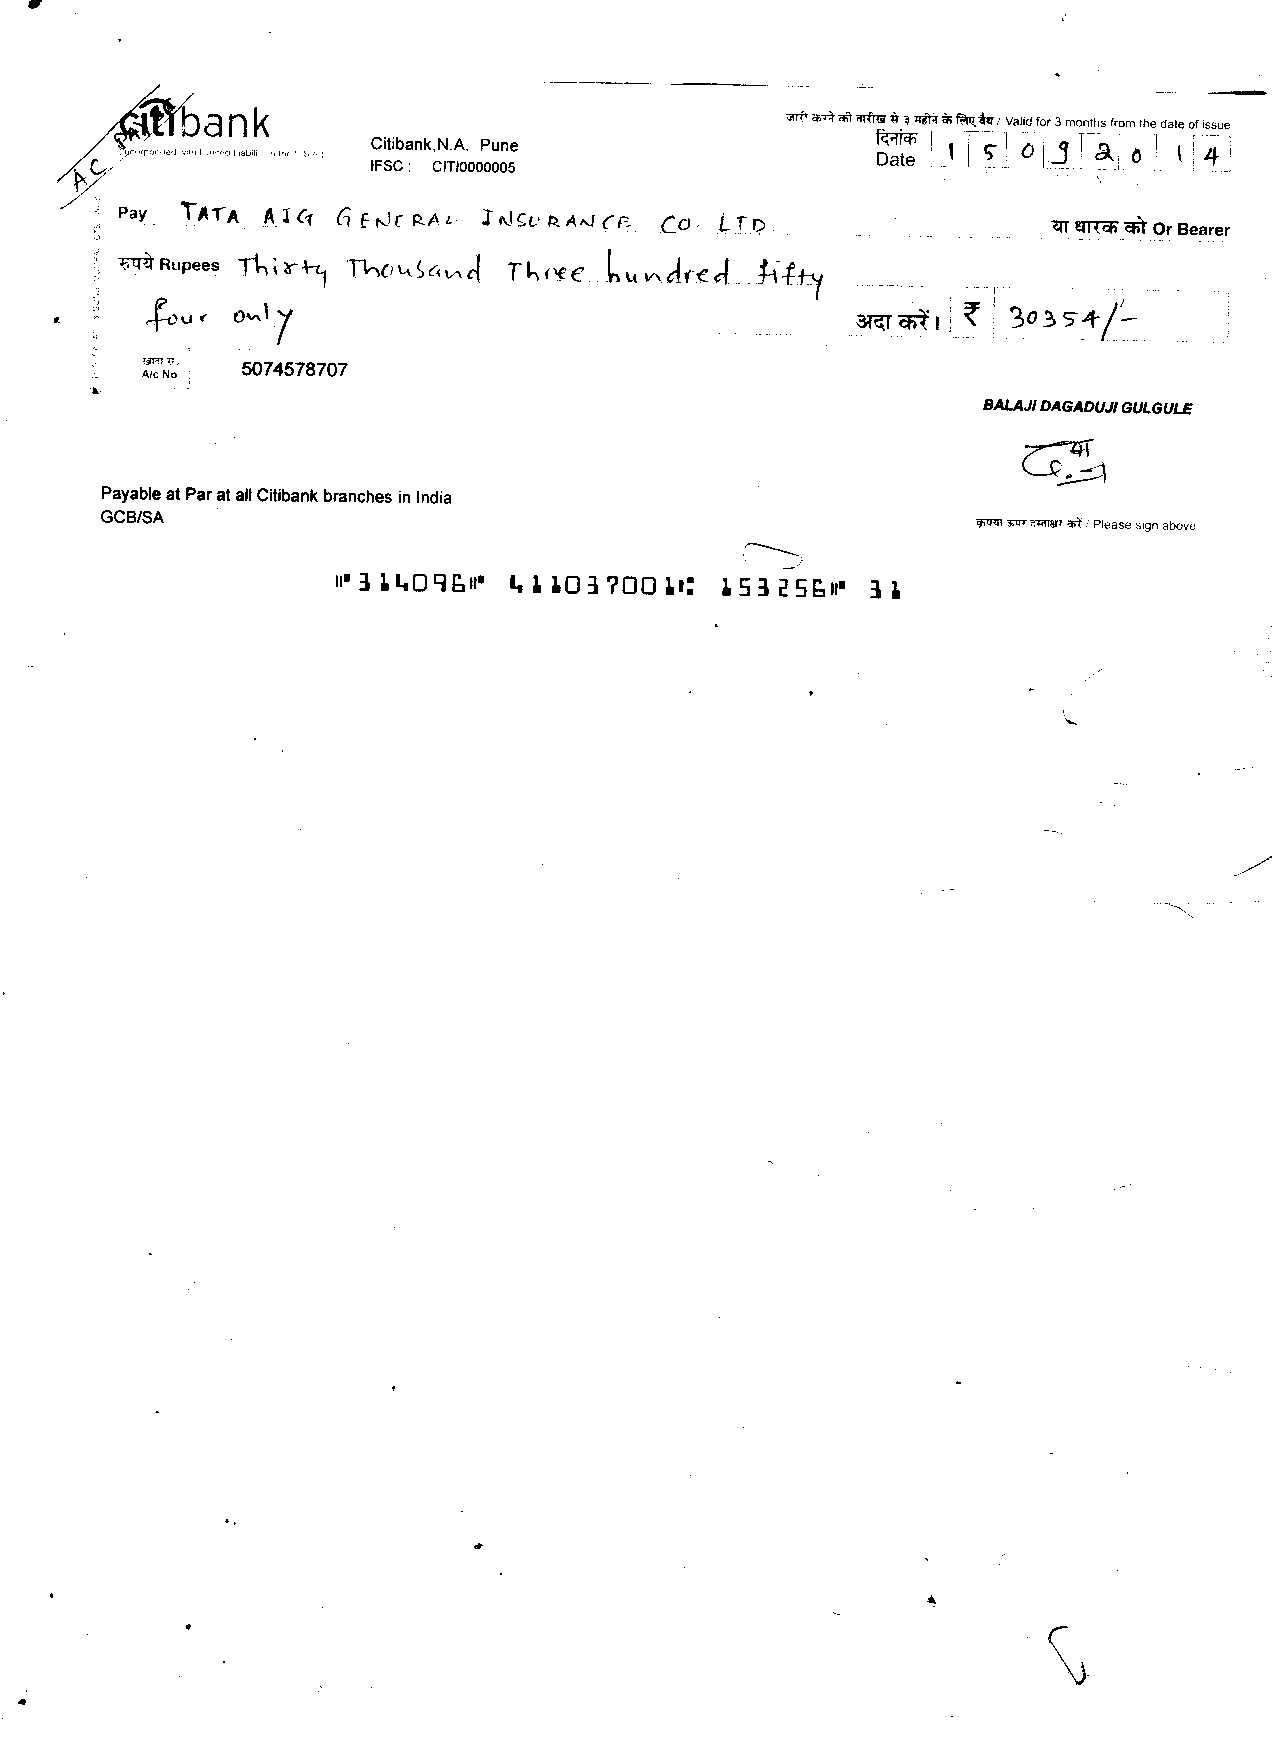 citibank
A/C
जारी करने की तारीख से ३ महीने के लिए वैध / Valid for 3 months from the date of issue
Citibank,N.A. Pune
IFSC : CITI0000005
दिनांक
Date 15092014
Pay TATA AIG GENERAL INSURANCE CO. LTD या धारक को Or Bearer
रुपये Rupees Thirty Thousand Three hundred fifty
four only अदा करें। ₹ 30354/-
खाता सं.
A/c No 5074578707
BALAJI DAGADUJI GULGULE
Payable at Par at all Citibank branches in India
GCB/SA
कृपया ऊपर हस्ताक्षर करें / Please sign above
⑈314096⑈ 411037001⑆ 153256⑈ 31